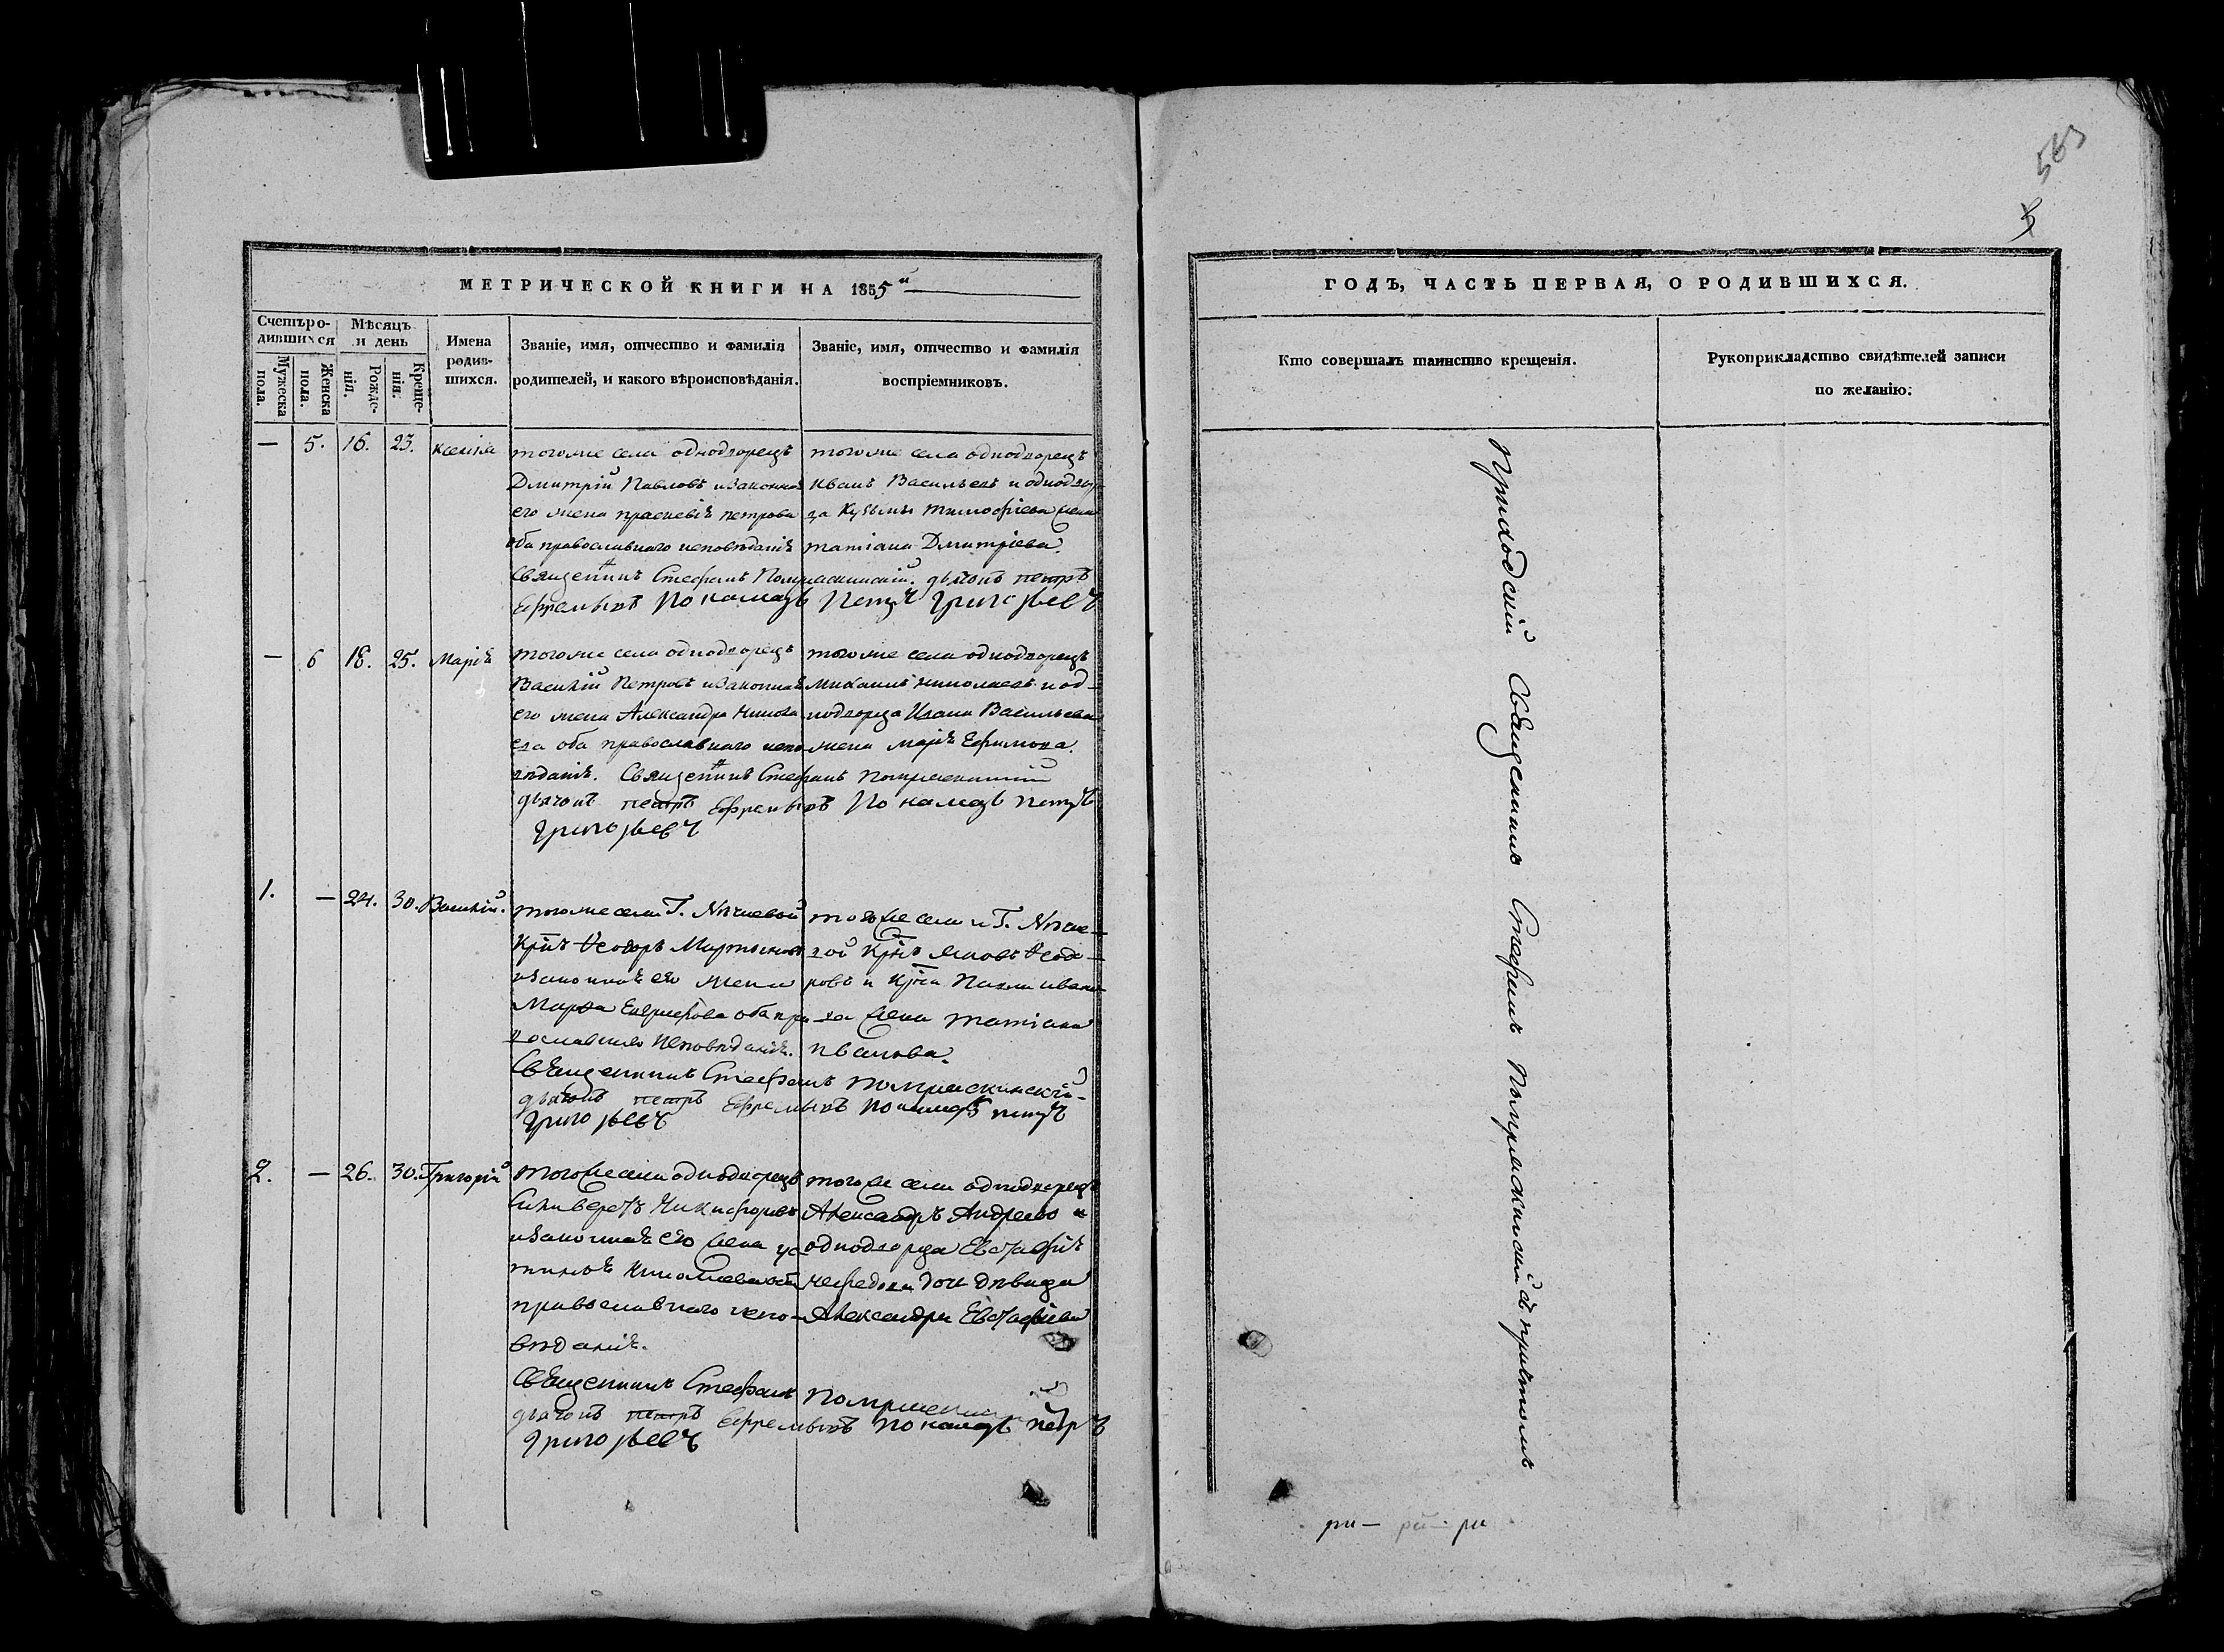 563
5
МЕТРИЧЕСКОЙ КНИГИ НА 1855й
Счетъ родившихся
Мужеска пола.
Женска пола.
Мѣсяцъ и день
Рожденія.
Крещенія.
Имена родившихся.
Званіе, имя, отчество и фамилія
родителей, и какого вѣроисповѣданія.
Званіе, имя, отчество и фамилія
воспріемниковъ.
— 5. 16. 23. Ксенія
тогоже села однодворецъ
Дмитрій Павловъ и законная
его жена праскевія петрова
оба православнаго исповѣданія
тогоже села однодворецъ
Иванъ Васильевъ и однодвор
ца Кузьмы Тимофѣева жена
татіана Дмитріева.
Священникъ Стефанъ дьячокъ петръ
Ефремовъ Пономарь Петръ Григорьевъ
— 6 18. 25. Марія
тогоже села однодворецъ
Василій Петровъ и законная
его жена Александра Никола
ева оба православнаго испо
вѣданія.
тогоже села однодворецъ
Михаилъ Николаевъ и од-
нодворца Ивана Васильева
жена марія Ефимова.
Священникъ Стефанъ
дьячокъ петръ Ефремовъ Пономарь петръ
Григорьевъ
1. — 24. 30. Василій.
тогоже села Г.
Крнъ Ѳеодоръ Мартыновъ
и законная его жена
Марѳа оба пра
вославнаго исповѣданія.
тогоже села Г.
вой Крнъ Яковъ Ѳеодо-
ровъ и Крна ивано-
ва жена татіана
иванова.
Священникъ Стефанъ
дьячокъ петръ Ефремовъ пономарь петръ
Григорьевъ
2. — 26. 30. Григорій
тогоже села однодворецъ
Силиверстъ Никифоровъ
и законная его жена ус
тинья Николаева оба
православнаго испо-
вѣданія.
тогоже села однодворецъ
Александръ Андреевъ и
однодворца Евстафія
дочь дѣвица
Александра Евстафіева
Священникъ Стефанъ
дьячокъ петръ Ефремовъ пономарь петръ
Григорьевъ
ГОДЪ, ЧАСТЬ ПЕРВАЯ, О РОДИВШИХСЯ.
Кто совершалъ таинство крещенія.
Рукоприкладство свидѣтелей записи
по желанію.
Приходскій Священникъ Стефанъ съ причтомъ
ри — рй — ри